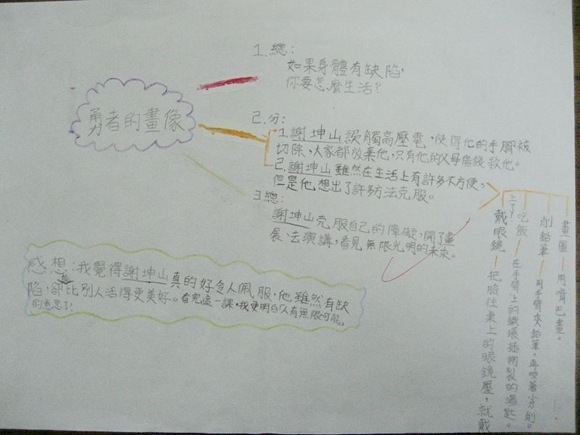 勇者的畫像
1.總:
如果身體有缺陷,
你要怎麼生活?
2.分:
1.謝坤山誤觸高壓電,使得他的手腳被
切除,大家都放棄他,只有他的父母借錢救他。
2.謝坤山雖然在生活上有許多不方便,
但是他想出了許多方法克服。
3.總:
謝坤山克服自己的障礙,開了畫
展、去演講,看見無限光明的未來。
畫圖—用嘴巴畫。
削鉛筆—用手臂夾鉛筆,再咬著刀削。
吃飯—在手臂上的鐵環插
戴眼鏡—把臉往桌上的眼鏡壓,就戴
上了。
感想:我覺得謝坤山真的好令人佩服,他雖然有缺
陷,卻比別人活得更美好。看完這一課,我更明白人有無限可能
的意思了。